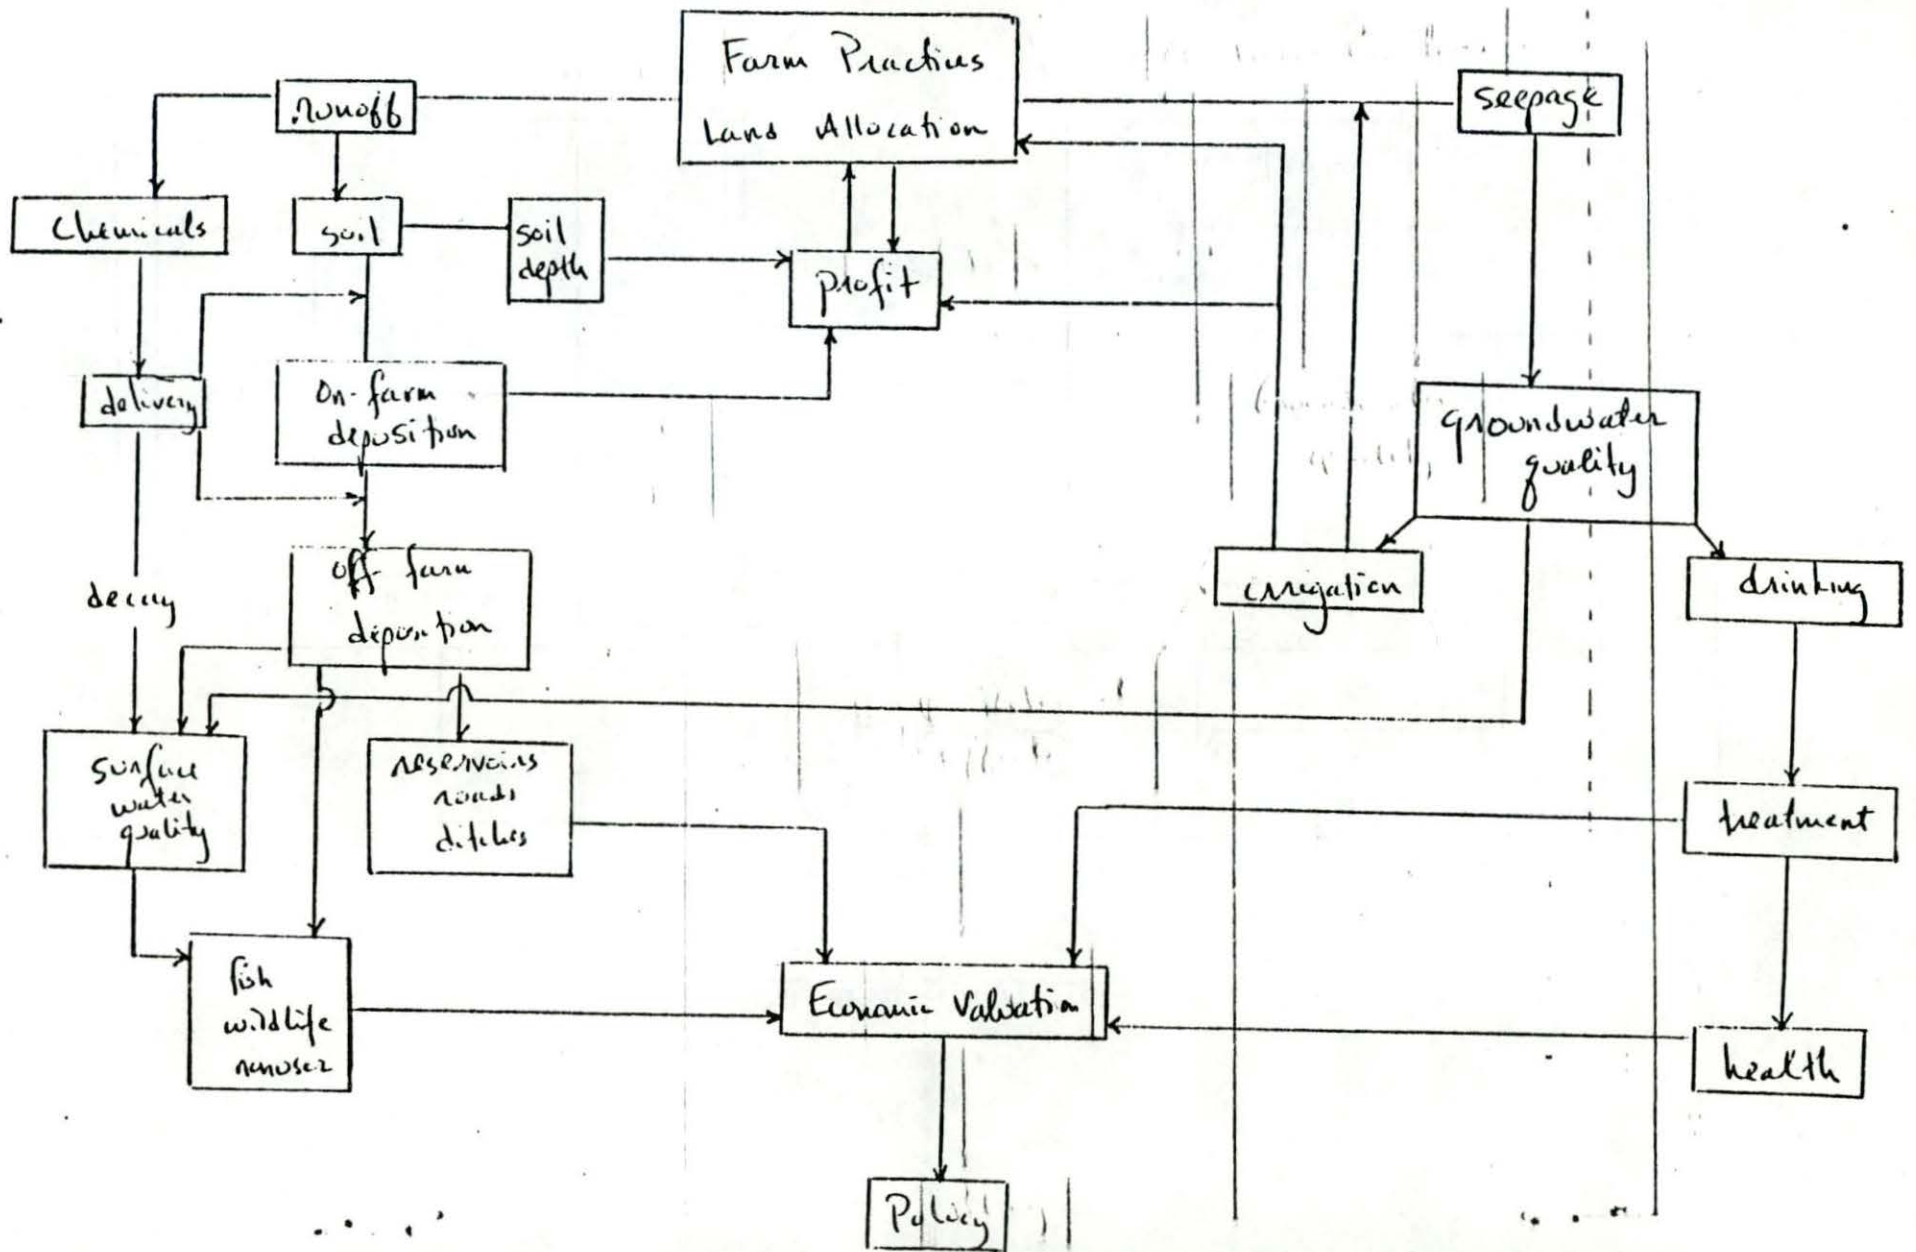 Farm Practices
Land Allocation
runoff
seepage
Chemicals
soil
soil
depth
profit
delivery
On-farm
deposition
groundwater
quality
decay
off-farm
deposition
irrigation
drinking
surface
water
quality
reservoirs
roads
ditches
treatment
fish
wildlife
Economic Valuation
health
Policy